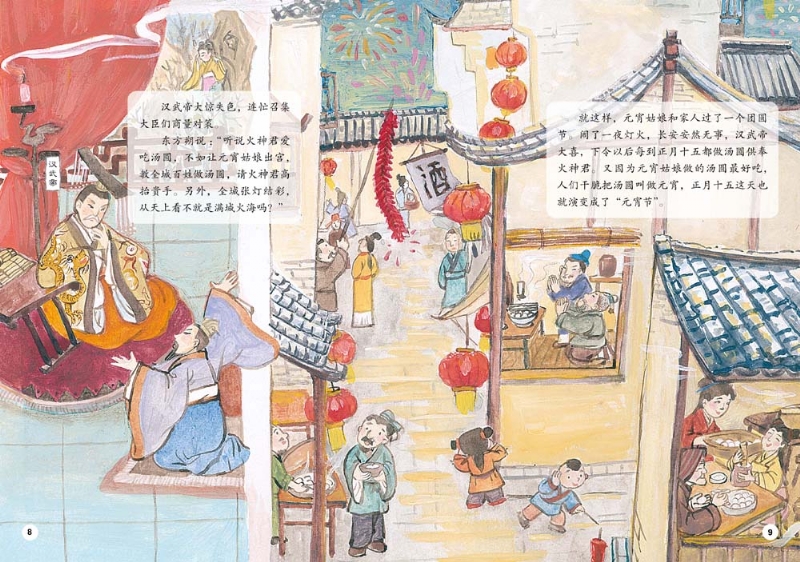 汉武帝大惊失色，连忙召集
大臣们商量对策。
东方朔说：“听说火神君爱
吃汤圆，不如让元宵姑娘出宫，
教全城百姓做汤圆，请火神君高
抬贵手。另外，全城张灯结彩，
从天上看不就是满城火海吗？”
汉武帝
就这样，元宵姑娘和家人过了一个团圆
节，闹了一夜灯火，长安安然无事，汉武帝
大喜，下令以后每到正月十五都做汤圆供奉
火神君。又因为元宵姑娘做的汤圆最好吃，
人们干脆把汤圆叫做元宵，正月十五这天也
就演变成了“元宵节”。
酒
8
9